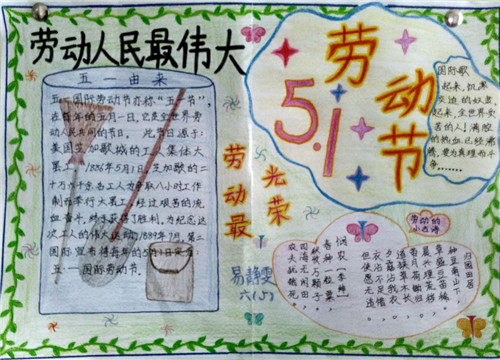 劳动人民最伟大
五一由来
五一国际劳动节亦称"五一节",
在每年的五月一日,它是全世界劳
动人民共同的节日。此节日源于
美国芝加哥城的工人集体大
罢工,1886年5月1日,芝加哥的二
十万六千余名工人为争取八小时工作
制而举行大罢工,经过艰苦的流
血奋斗,终于获得了胜利,为纪念这
次工人的伟大运动,1889年7月,第二
国际宣布将每年的5月1日定为
五一国际劳动节。
劳动最
光荣
易静雯
六(5)
5.1
劳动节
国际歌
起来,饥寒
交迫的奴隶,
起来,全世界受
苦的人!满腔
的热血已经沸
腾,要为真理而斗
争
劳动的
小古诗
归园田居
种豆南山下
草盛豆苗稀
晨兴理荒秽
带月荷锄归
道狭草木长
夕露沾我衣
衣沾不足惜
但使愿无违
悯农【李绅】
春种一粒粟
秋收万颗子
四海无闲田
农夫犹饿死